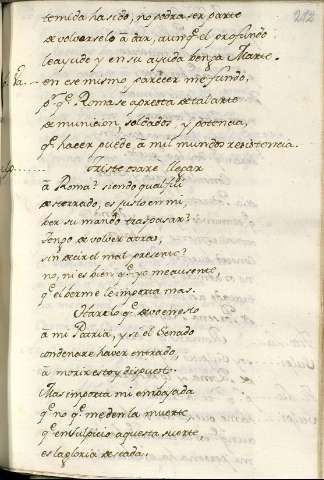 212
temida ha sido, no podra ser parte
de volverselo â dar, aunq̃ el profundo
le ayude y en su ayuda benga Marte.
en ese mismo parecer me fundo,
pr q̃ Roma se apresta de tal arte
de municion, soldados, y potencia,
q̃ hacer puede â mil mundos resistencia.
Triste osaré llegar
â Roma? siendo qual fui
desterrado, es justo en mi,
ver su mando traspasar?
Tengo de volver atras,
sin decir el mal presente?
no, ni es bien q̃ yo me ausente,
q̃ el verme le importa mas.
q̃ veo en esto
â mi Patria, y si el Senado
condenare haver entrado,
â morir estoy dispuesto.
Mas importa mi embajada
q̃ no q̃ me den la muerte,
q̃ en Sulpicio aquesta suerte,
es la gloria deseada.